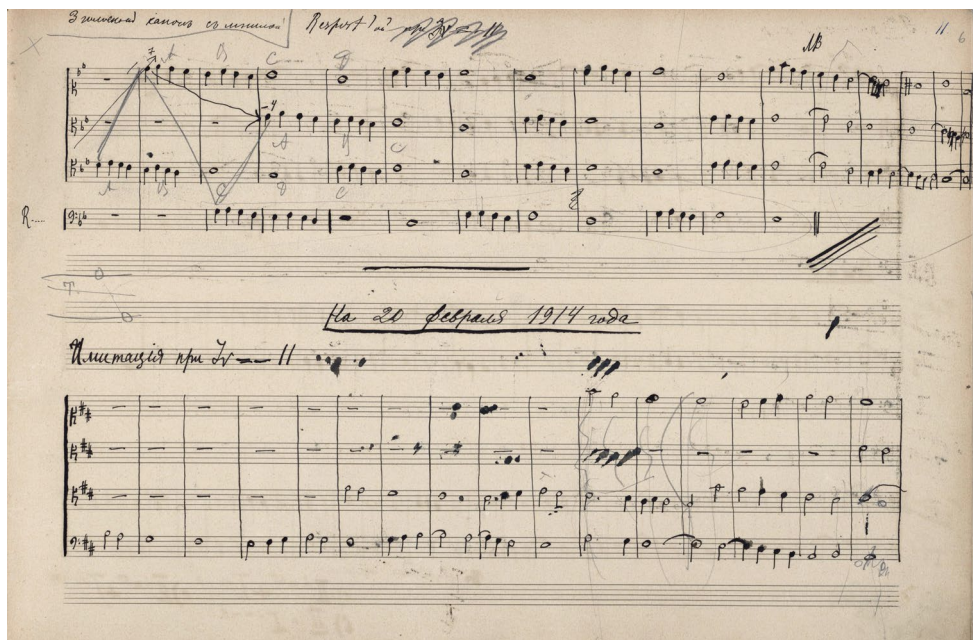 3 голосный канонъ съ мнимой Respost'ой при
NB
11 6
A B C D
A B C
A B C D C
R....
T.
На 20 февраля 1914 года
Имитація при Iv — 11